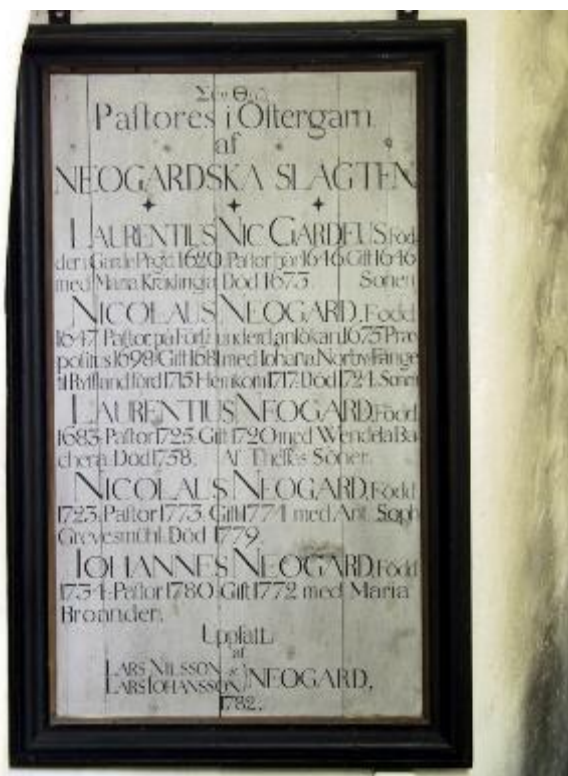 Σὺν Θεῷ
Paſtores i Öſtergarn
af
NEOGARDSKA SLÄGTEN
LAURENTIUS NIC GARDEUS, Föd-
der i Garde Prgd 1620. Paſtor här 1646 Gift 1646
med Maria Kräklingia Död 1675. Sonen
NICOLAUS NEOGARD, Född
1647 Paſtor på Förſ. underd. anſökan 1675 Præ-
poſitus 1698 Gift 1681 med Iohana Norby Fånge
til Ryſſland förd 1715 Hemkom 1717. Död 1724. Sonen
LAURENTIUS NEOGARD, Född
1683. Paſtor 1725. Gift 1720 med Wendela Ba-
chera. Död 1758. Af Theſſas Söner.
NICOLAUS NEOGARD, Född
1723. Paſtor 1773. Gift 1774 med Ant. Soph
Grevesmühl. Död 1779.
IOHANNES NEOGARD, Född
1734. Paſtor 1780. Gift 1772 med Maria
Broander.
Upplatt
af
LARS NILSSON &
LARS IOHANSSON NEOGARD,
1782.